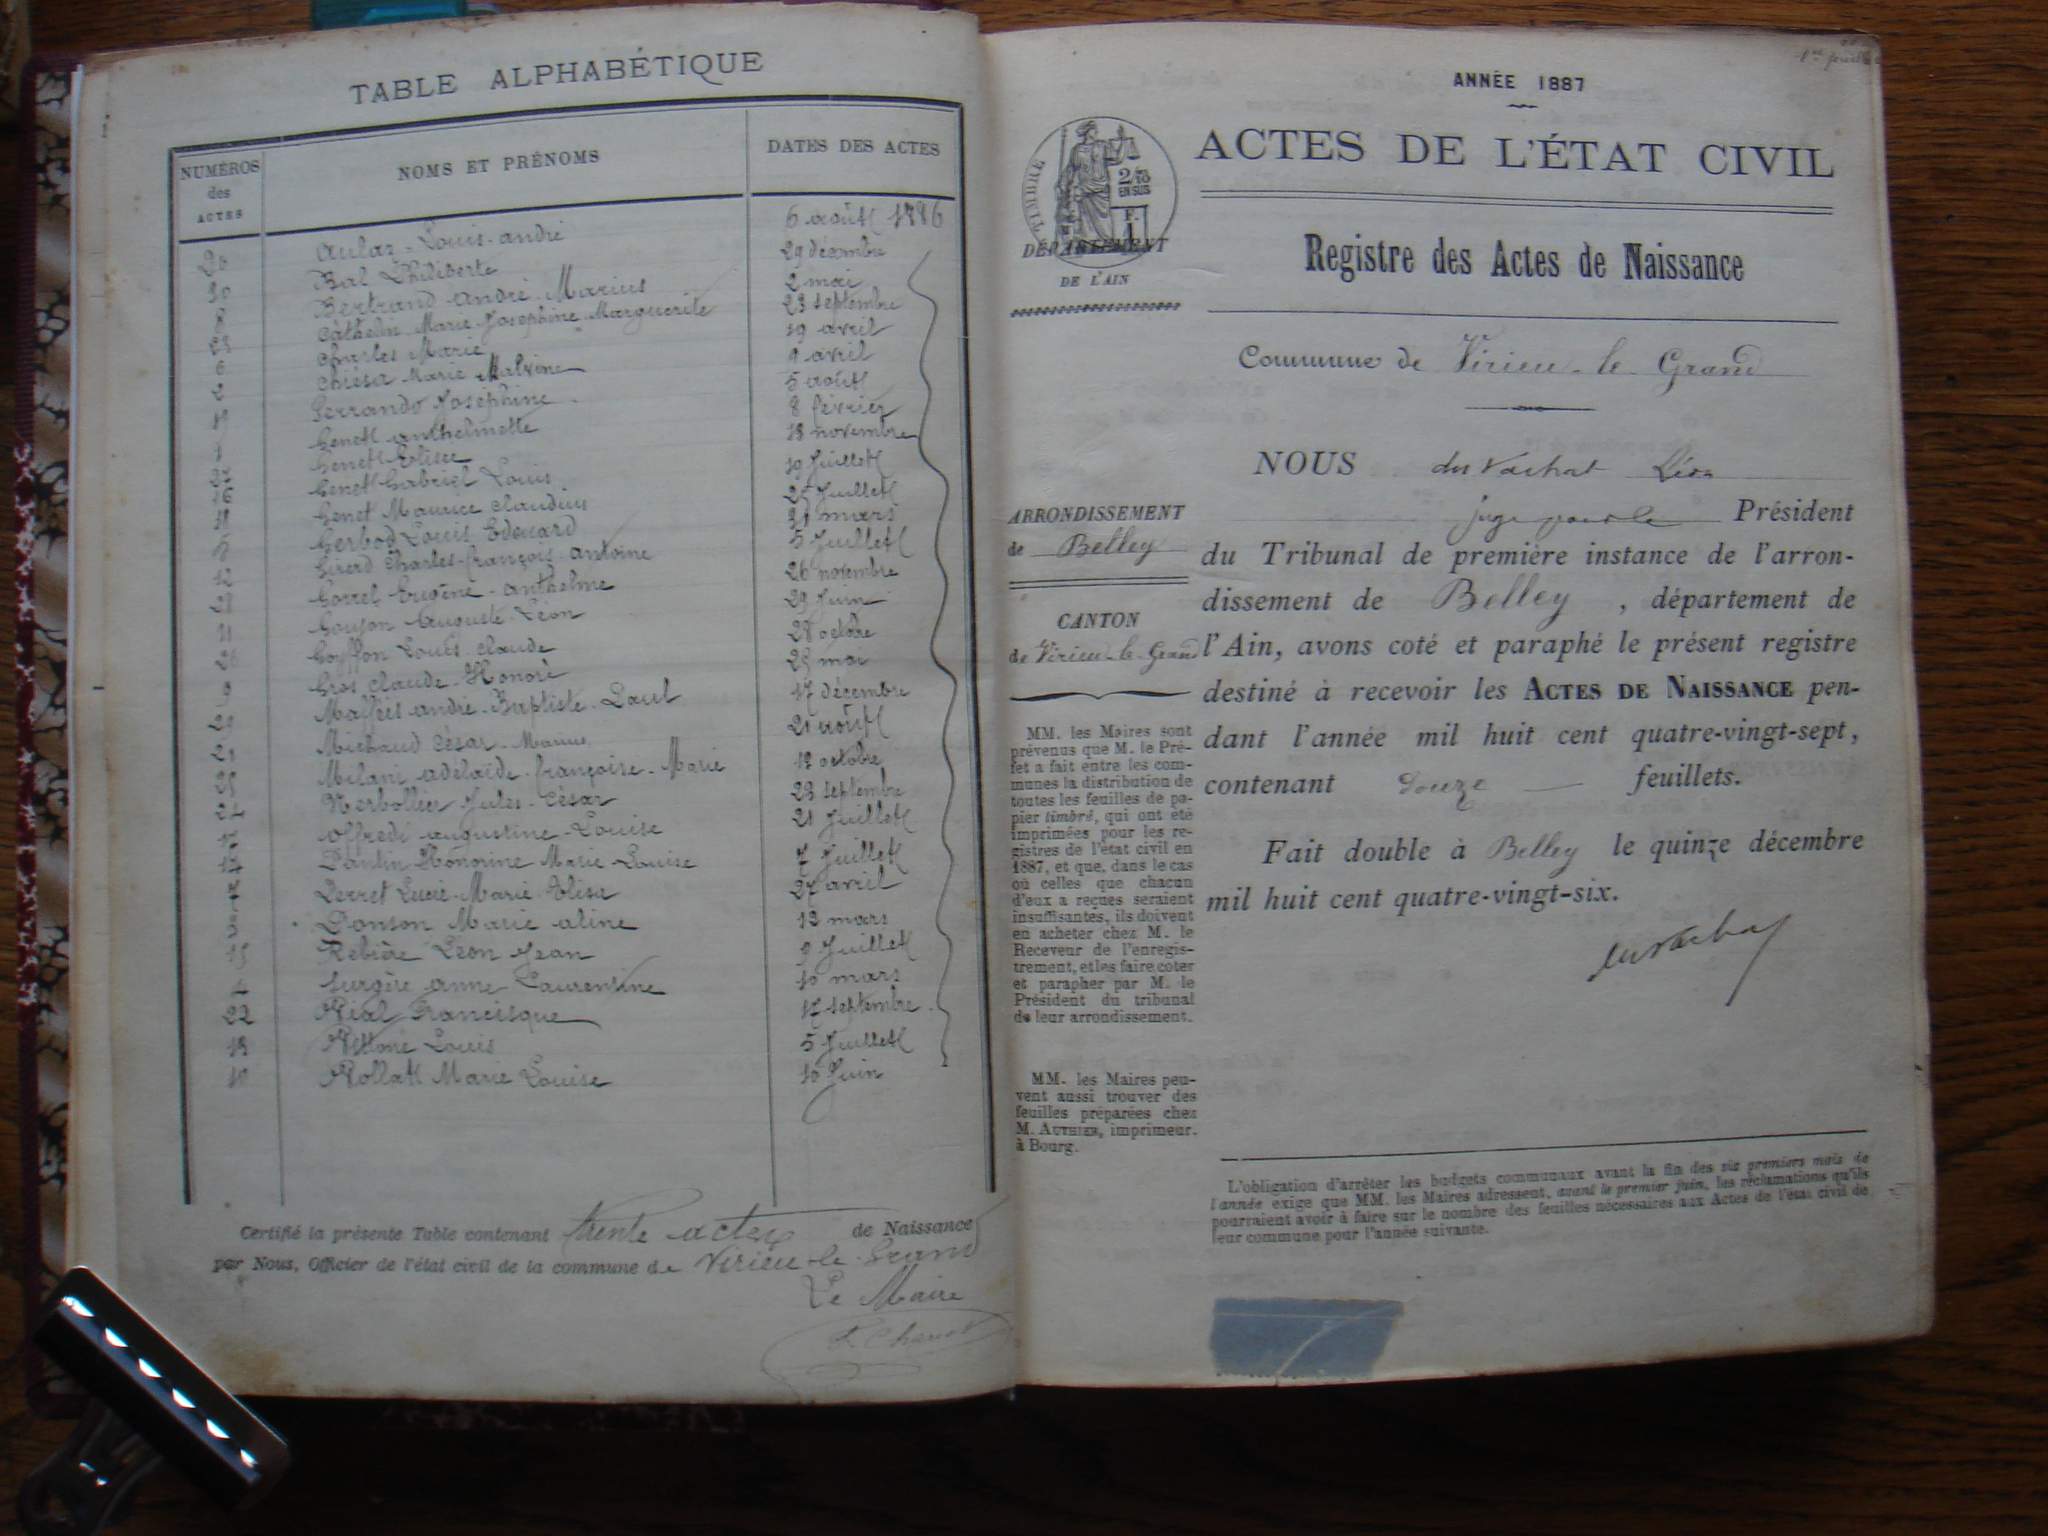 TABLE ALPHABÉTIQUE
NUMÉROS des ACTES
NOMS ET PRÉNOMS
DATES DES ACTES
20 Aulaz Louis andré 6 août 1886
30 Bal Philiberte 29 décembre
8 Bertrand andré Marius 2 mai
23 Cathelin Marie Josephine Marguerite 23 septembre
6 Charles Marie 19 avril
2 Chiésa Marie Malvine 9 avril
19 Ferrando Joséphine 5 août
1 Genet anthelmette 8 février
27 Genet Elisée 18 novembre
16 Genet Gabriel Louis 19 Juillet
18 Genet Maurice Claudius 25 Juillet
5 Gerbod Louis Edouard 31 mars
12 Girerd Charles-françois-antoine 5 Juillet
28 Gorrel Eugène-anthelme 26 novembre
11 Goujon Auguste Léon 29 Juin
26 Goyffon Louis Claude 28 octobre
9 Gros Claude-Honoré 25 mai
29 André-Baptiste-Paul 17 décembre
21 Michaud César-Marius 21 août
25 Milani adelaïde-françoise-Marie 12 octobre
24 Nerbollier Jules-César 23 septembre
17 Offredi augustine-Louise 21 Juillet
14 Pantin Honorine Marie Louise 7 Juillet
7 Perret Lucie-Marie Elisa 27 avril
3 Ponson Marie aline 12 mars
15 Rebière Léon Jean 9 Juillet
4 Surgère anne Laurentine 10 mars
22 Vial Francisque 17 septembre
13 Vittoné Louis 5 Juillet
10 Vollat Marie Louise 10 Juin
Certifié la présente Table contenant trente actes de Naissance
par Nous, Officier de l'état civil de la commune de Virieu-le-Grand
Le Maire
1er feuillet
ANNÉE 1887
ACTES DE L'ÉTAT CIVIL
TIMBRE
2/10 EN SUS
F. 1
DÉPARTEMENT
DE L'AIN
Registre des Actes de Naissance
Commune de Virieu-le-Grand
NOUS du Vachat Léon
juge pour le Président
ARRONDISSEMENT
de Belley
CANTON
de Virieu-le-Grand
du Tribunal de première instance de l'arron-
dissement de Belley, département de
l'Ain, avons coté et paraphé le présent registre
destiné à recevoir les ACTES DE NAISSANCE pen-
dant l'année mil huit cent quatre-vingt-sept,
contenant Douze feuillets.
Fait double à Belley le quinze décembre
mil huit cent quatre-vingt-six.
du Vachat
MM. les Maires sont
prévenus que M. le Pré-
fet a fait entre les com-
munes la distribution de
toutes les feuilles de pa-
pier timbré, qui ont été
imprimées pour les re-
gistres de l'état civil en
1887, et que, dans le cas
où celles que chacun
d'eux a reçues seraient
insuffisantes, ils doivent
en acheter chez M. le
Receveur de l'enregis-
trement, et les faire coter
et parapher par M. le
Président du tribunal
de leur arrondissement.
MM. les Maires peu-
vent aussi trouver des
feuilles préparées chez
M. AUTHIER, imprimeur.
à Bourg.
L'obligation d'arrêter les budgets communaux avant la fin des six premiers mois de
l'année exige que MM. les Maires adressent, avant le premier juin, les réclamations qu'ils
pourraient avoir à faire sur le nombre des feuilles nécessaires aux Actes de l'état civil de
leur commune pour l'année suivante.